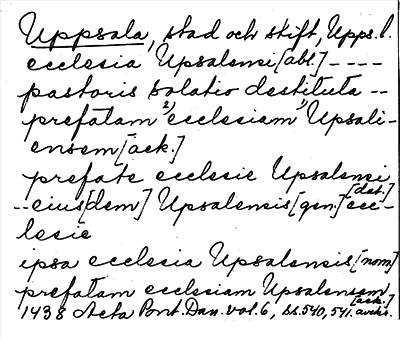 Uppsala, stad och stift, Upps. l.
ecclesia Upsalensi [abl.] ----
pastoris solatio destituta --
prefatam 2) ecclesiam 1) Upsali-
ensem [ack.]
prefate ecclesie Upsalensi [dat.]
-- eius[dem] Upsalensis [gen.] ecc-
lesie
ipsa ecclesia Upsalensis [nom.]
prefatam ecclesiam Upsalensem [ack.]
1438 Acta Pont. Dan. vol. 6, ss. 540, 541.